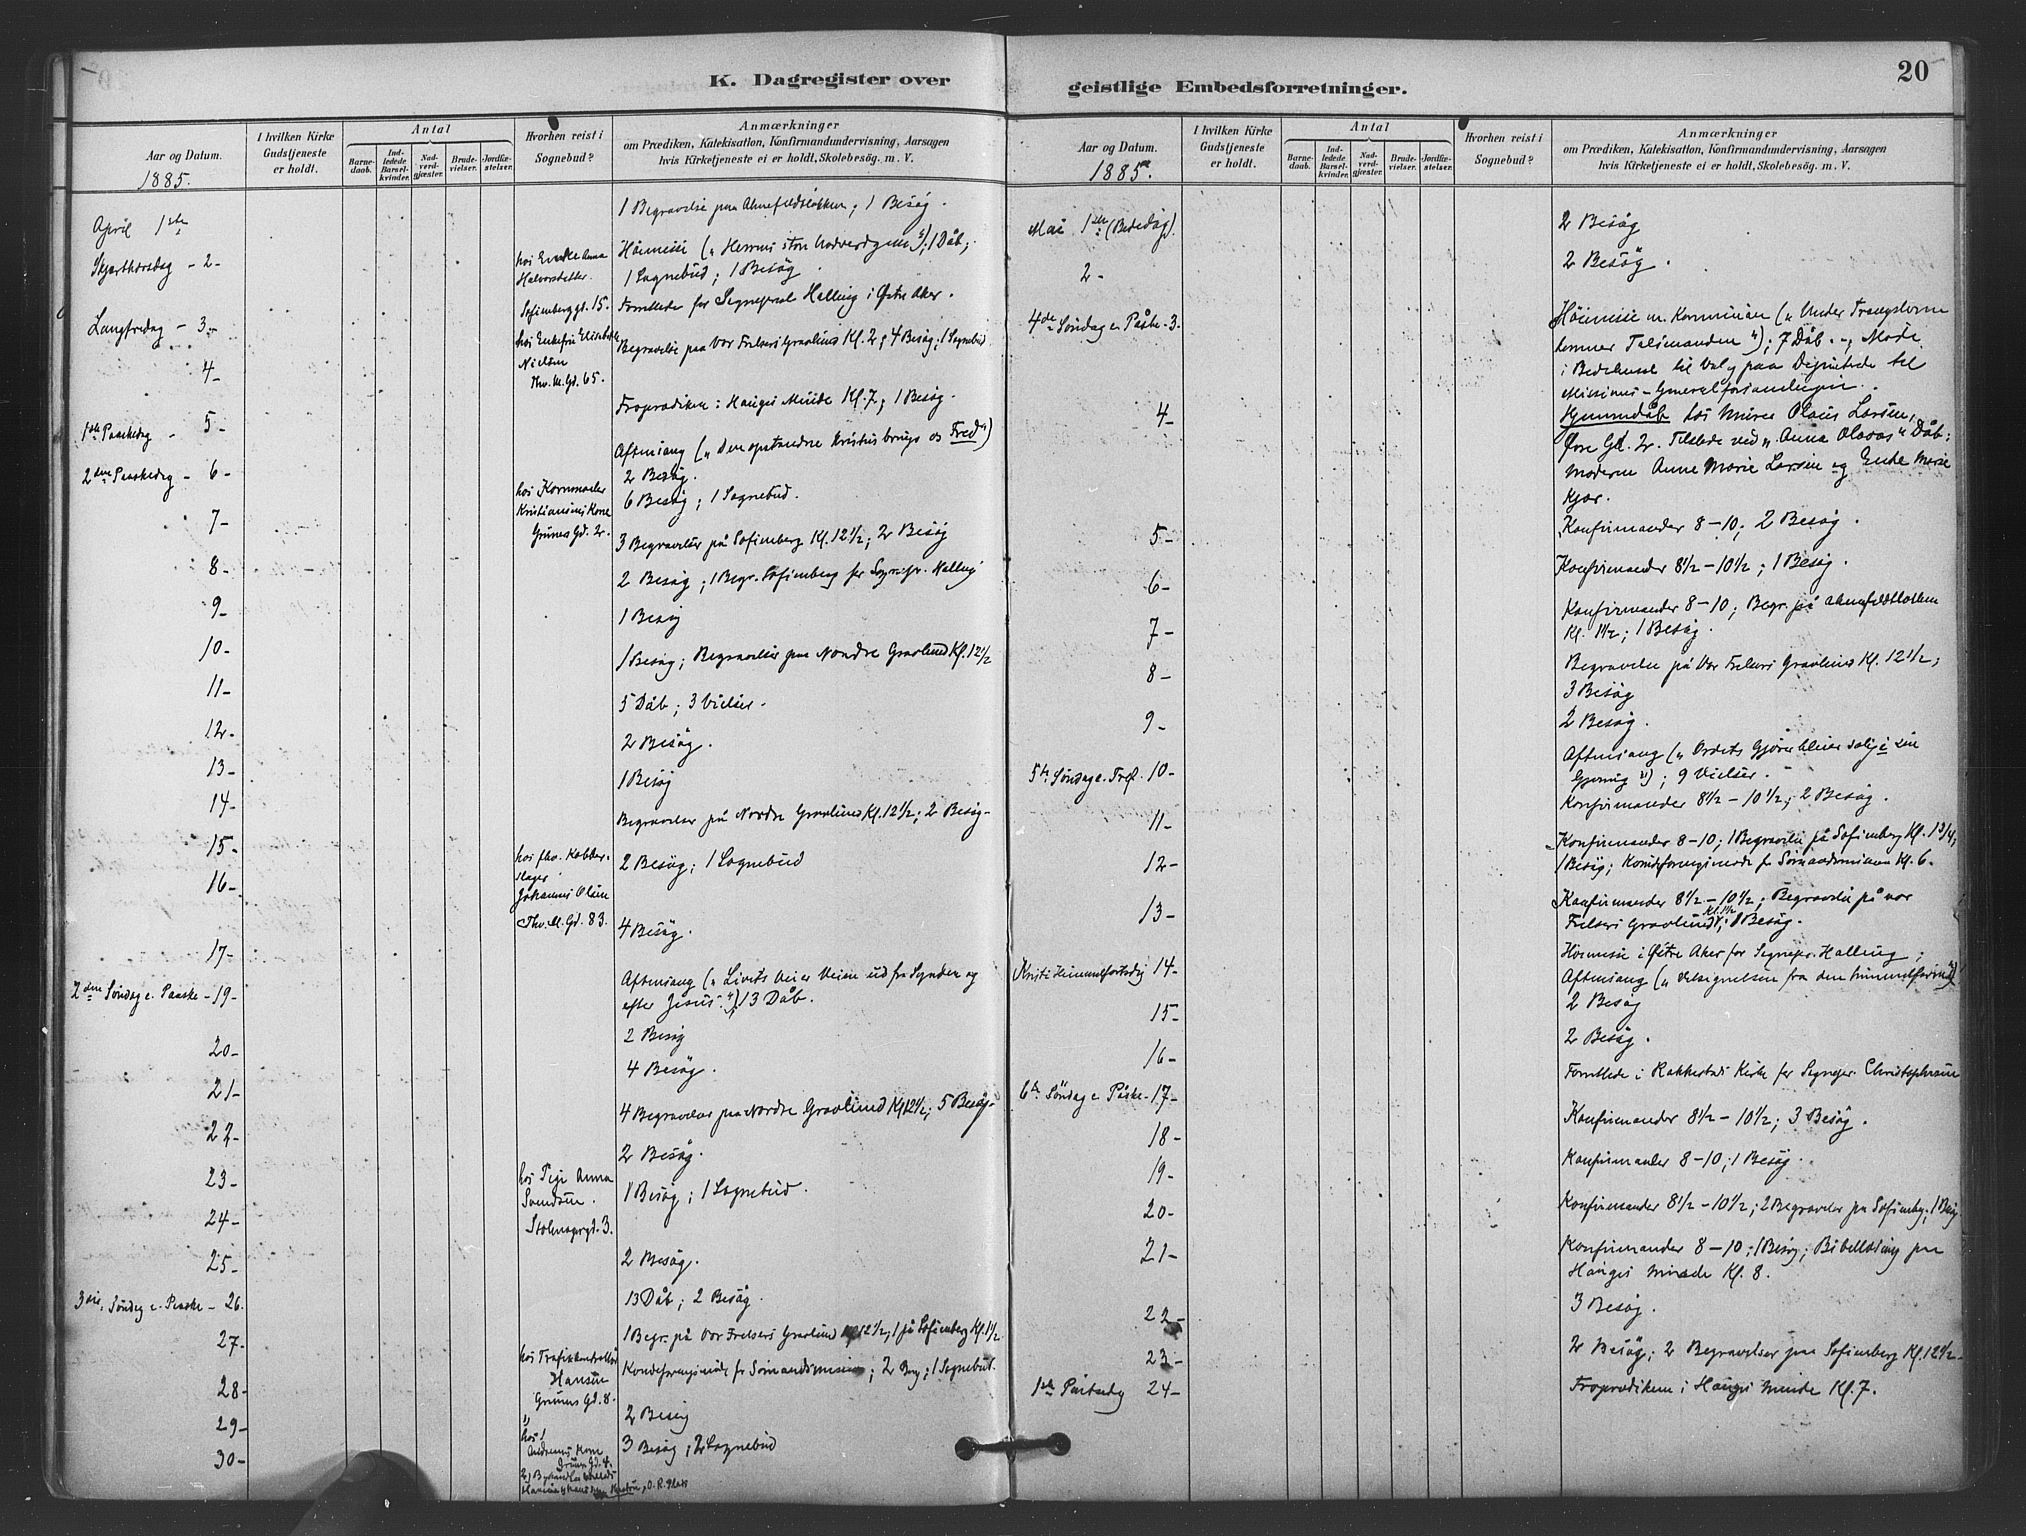 K. Dagregister over
Aar og Datum.
1885.
I hvilken Kirke Gudstjeneste er holdt.
Antal
Barne-daab.
Ind-ledede Barsel-kvinder.
Nad-verd-gjæster.
Brude-vielser.
Jordfæ-stelser.
Hvorhen reist i Sognebud?
Anmærkninger
om Prædiken, Katekisation, Konfirmandundervisning, Aarsagen
hvis Kirketjeneste ei er holdt, Skolebesøg. m. V.
April 1ste
1 Begravelse paa Ahnefeldsløkken; 1 Besög.
Skjærthorsdag - 2 -
hos Enke Anna
Halvorsdatter
Sofienberggd. 15.
Höimesse („Herrens store Nadverdgjerning“); 1 Dåb;
1 Sognebud; 1 Besög
Langfredag - 3 -
Forrettede for Sognepræst Halling i Østre Aker.
4 -
hos Enkefru Elisabeth
Nielsen
Thv. M. Gd. 65.
Begravelse paa Vor Frelsers Gravlund Kl. 2; 4 Besög; 1 Sognebud
1ste Paaskedag - 5 -
Froprædiken i Hauges Minde Kl. 7; 1 Besög.
2den Paaskedag - 6 -
Aftensang („Den opstandne Kristus bringe os Fred“)
2 Besög.
7 -
hos Kornmaaler
Kristiansens Kone
Grüners Gd. 2.
6 Besög; 1 Sognebud.
8 -
3 Begravelser på Sofienberg Kl. 12½; 2 Besög
9 -
2 Besög; 1 Begr. Sofienberg for Sognepr. Halling
10 -
1 Besög
11 -
1 Besög; Begravelser paa Nordre Gravlund Kl. 12½
12 -
5 Dåb; 3 Vielser.
13 -
2 Besög.
14 -
1 Besög
15 -
Begravelser på Nordre Gravlund Kl. 12½; 2 Besög -
16 -
hos fhv. Kobber-
slager
Johannes Olsen
Thv. M. Gd. 83.
2 Besög; 1 Sognebud
17 -
4 Besög.
2den Söndag e. Paaske - 19 -
Aftensang („Livets Vei er Veien ud fra Synden og
efter Jesus“); 13 Dåb.
20 -
2 Besög
21 -
4 Besög.
22 -
4 Begravelser paa Nordre Gravlund Kl 12½; 5 Besög -
23 -
2 Besög.
24 -
hos Pige Anna
Svendsen.
Stolmagergd. 3.
1 Besög; 1 Sognebud.
25 -
2 Besög.
3die Söndag e. Paaske - 26.
13 Dåb; 2 Besög.
27 -
1 Begr. på Vor Frelsers Gravlund Kl 12½; 1 på Sofienberg Kl. 1½
28 -
hos Trafikkontrollör
Hansen
Grüners Gd. 8.
Komiteforeningsmöde for Sömandsmission; 2 Besøg; 1 Sognebud.
29 -
2 Besög
30 -
1) hos
Andersens Kone
Grüners Gd. 4.
3 Besög; 2 Sognebud
geistlige Embedsforretninger.
20
Aar og Datum.
1885.
I hvilken Kirke Gudstjeneste er holdt.
Antal
Barne-daab.
Ind-ledede Barsel-kvinder.
Nad-verd-gjæster.
Brude-vielser.
Jordfæ-stelser.
Hvorhen reist i Sognebud?
Anmærkninger
om Prædiken, Katekisation, Konfirmandundervisning, Aarsagen
hvis Kirketjeneste ei er holdt, Skolebesøg. m. V.
Mai 1ste (Bededag).
2 Besög
2 -
2 Besög.
4de Söndag e. Påske - 3.
Höimesse m. Kommunion („Under Trængslerne
kommer Talsmanden“); 7 Dåb. -; Möde
i Bedehuset til Valg paa Deputerede til
Missions-Generalforsamlingen.
4 -
Hjemmedåb hos Murer Olaus Larsen,
Øvre Gd. 2. Tilstede ved „Anna Olavas“ Dåb:
Moderen Anne Marie Larsen og Enke Marie
Kjær.
5 -
Konfirmander 8-10; 2 Besög.
6 -
Konfirmander 8½-10½; 1 Besög.
7 -
Konfirmander 8-10; Begr. på Ahnefeldtløkken
Kl. 1½; 1 Besög.
8 -
Begravelse på Vor Frelsers Gravlund Kl. 12½;
3 Besög
9 -
2 Besög.
5te Söndag e. Påske - 10 -
Aftensang („Ordets Gjörer bliver salig i sin
Gjerning“); 9 Vielser.
11 -
Konfirmander 8½-10½; 2 Besög.
12 -
Konfirmander 8-10; 1 Begravelse på Sofienberg Kl. 1 3/4;
1 Besög; Komiteforeningsmöde for Sömandsmissionen Kl. 6.
13 -
Konfirmander 8½-10½; Begravelse på Vor
Frelsers Gravlund Kl. 1½; 1 Besög.
Kristi Himmelfartsdag 14 -
Höimesse i Østre Aker for Sognepr. Halling;
Aftensang („Velsignelsen fra den himmelfarne“)
15 -
2 Besög
16 -
2 Besög.
6te Söndag e. Påske - 17 -
Forrettede i Rakkestads Kirke for Sognepr. Christophersen
18 -
Konfirmander 8½-10½; 3 Besög.
19 -
Konfirmander 8-10; 1 Besög.
20 -
Konfirmander 8½-10½; 2 Begravelser paa Sofienbg.; 1 Besög
21 -
Konfirmander 8-10; 1 Besög; Bibellæsning paa
Hauges Minde Kl. 8.
22 -
3 Besög.
23 -
2 Besög; 2 Begravelser paa Sofienberg Kl. 12½ -
1ste Pintsedag 24 -
Froprædiken i Hauges Minde Kl. 7.